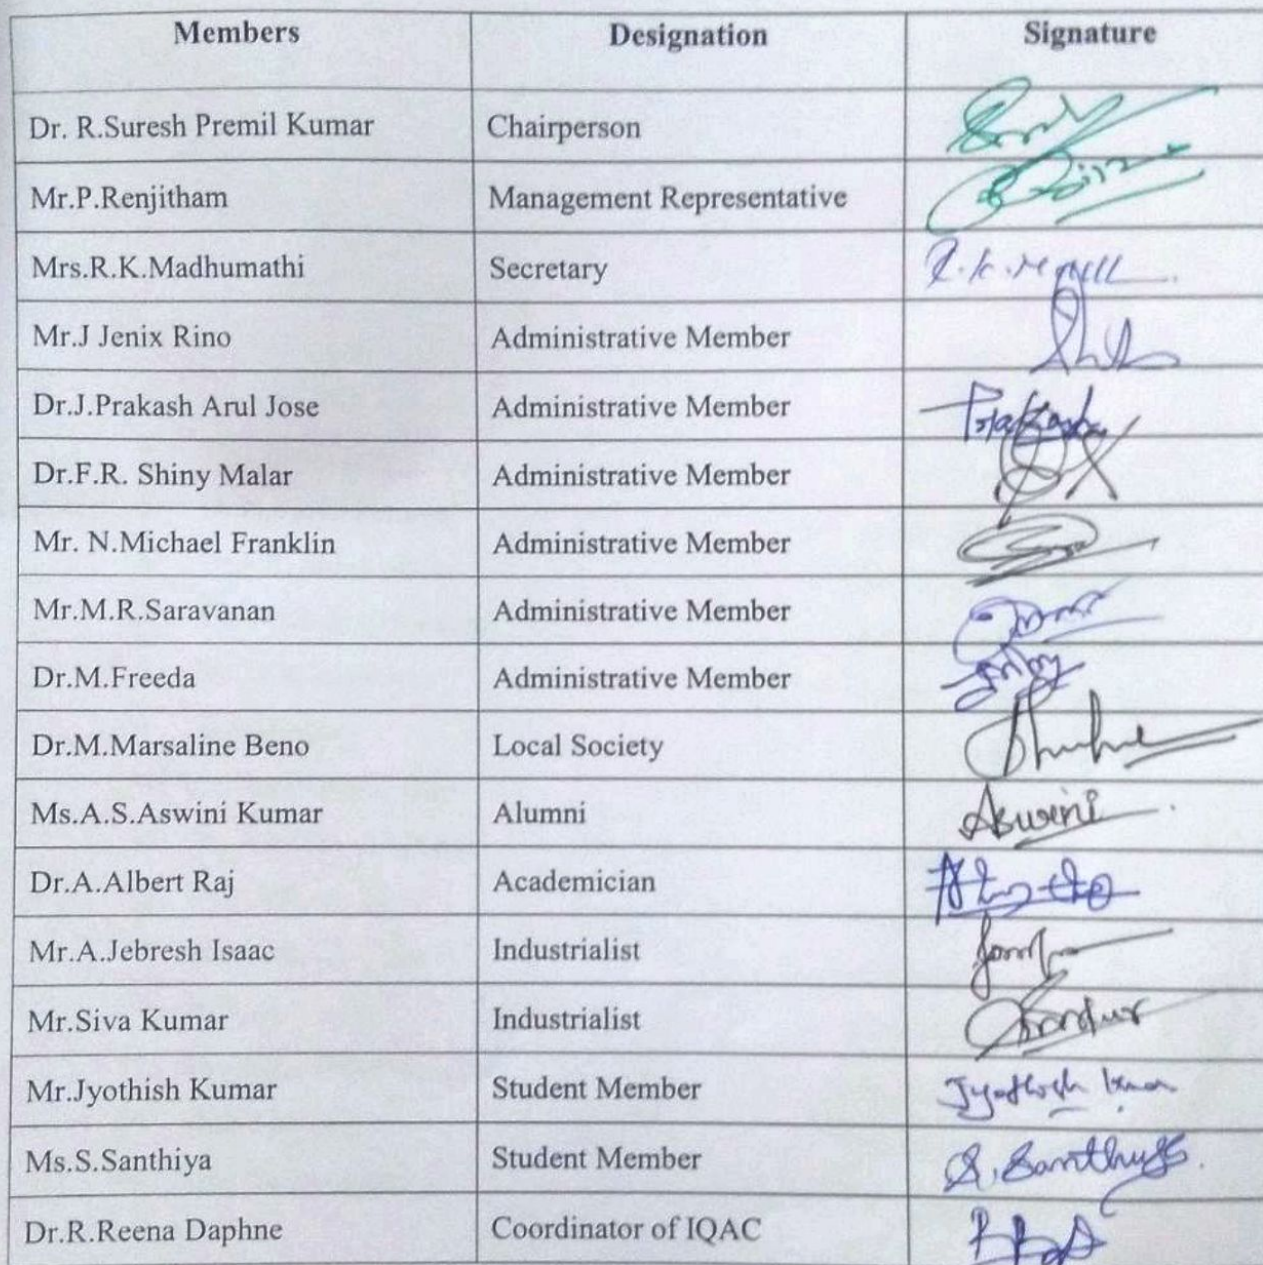 Members Designation Signature
Dr. R.Suresh Premil Kumar Chairperson
Mr.P.Renjitham Management Representative
Mrs.R.K.Madhumathi Secretary
Mr.J Jenix Rino Administrative Member
Dr.J.Prakash Arul Jose Administrative Member Prakash
Dr.F.R. Shiny Malar Administrative Member
Mr. N.Michael Franklin Administrative Member
Mr.M.R.Saravanan Administrative Member
Dr.M.Freeda Administrative Member
Dr.M.Marsaline Beno Local Society
Ms.A.S.Aswini Kumar Alumni Aswini
Dr.A.Albert Raj Academician
Mr.A.Jebresh Isaac Industrialist
Mr.Siva Kumar Industrialist
Mr.Jyothish Kumar Student Member
Ms.S.Santhiya Student Member
Dr.R.Reena Daphne Coordinator of IQAC